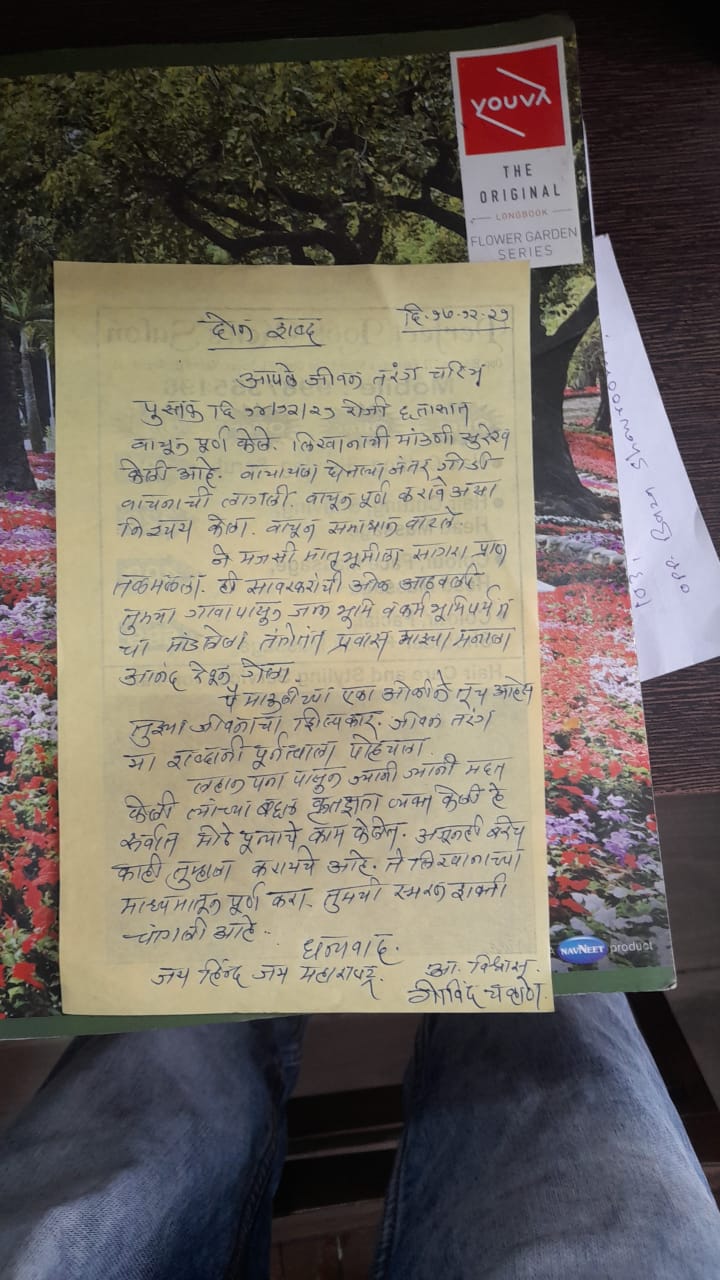 YOUVA
THE
ORIGINAL
LONGBOOK
FLOWER GARDEN
SERIES
दोन शब्द
दि.१७-१२-२१
आपले जीवन तरंग चरित्र
पुस्तक दि १४/१२/२१ रोजी ६ तासात
वाचून पूर्ण केले. लिखानाची मांडणी सुरेख
केली आहे. वाचायला घेतल्या नंतर गोडी
वाचनाची लागली. वाचून पूर्ण करावे असा
निश्चय केला. वाचून समाधान वाटले
ने मजसी मातृभूमीला सागरा प्राण
तळमळला. ही सावरकरांची ओळ आठवली
तुमच्या गावापासून जन्म भूमि व कर्मभूमिपर्यंत
चा मांडलेला प्रवास माझ्या मनाला
आनंद देवून गेला.
माऊलीच्या एका ओळीने तूच आहेस
तुझ्या जीवनाचा शिल्पकार. जीवन तरंग
या शब्दानी पूर्णत्वाला पोहचला.
लहान पना पासून ज्यानी ज्यानी मदत
केली त्यांच्या बद्दल कृतज्ञता व्यक्त केली हे
सर्वात मोठे पून्याचे काम केलेत. अजूनही बरेच
काही तुम्हाला करायचे आहे. ते लिखानाच्या
माध्यमातून पूर्ण करा. तुमची स्मरन शक्ती
चांगली आहे.
धन्यवाद.
जय हिन्द जय महाराष्ट्र.
आ. विश्वासू.
गोविंद चव्हाण.
NAVNEET product
103,
opp.